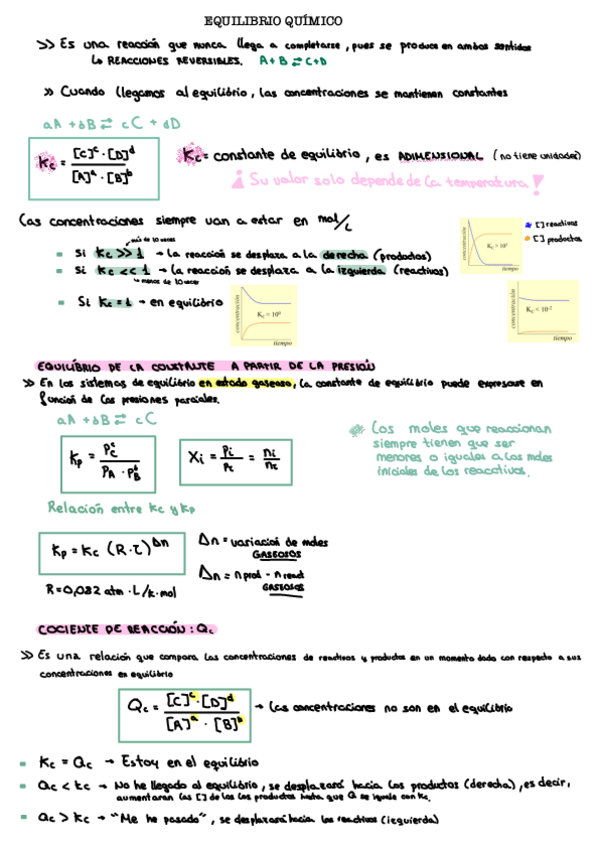 EQUILIBRIO QUÍMICO
>> Es una reacción que nunca llega a completarse, pues se produce en ambos sentidos
↳ REACCIONES REVERSIBLES. A+B ⇄ C+D
>> Cuando llegamos al equilibrio, las concentraciones se mantienen constantes
aA + bB ⇄ cC + dD
Kc = [C]^c · [D]^d / [A]^a · [B]^b
Kc = constante de equilibrio, es ADIMENSIONAL (no tiene unidades)
¡Su valor solo depende de la temperatura!
Las concentraciones siempre van a estar en mol/L
más de 10 veces
Si Kc >> 1 → La reacción se desplaza a la derecha (productos)
Si Kc << 1 → La reacción se desplaza a la izquierda (reactivos)
menos de 10 veces
Si Kc = 1 → en equilibrio
concentración
Kc = 10⁰
tiempo
concentración
tiempo
[ ] reactivos
[ ] productos
concentración
Kc < 10⁻²
tiempo
EQUILÍBRIO DE LA CONSTANTE A PARTIR DE LA PRESIÓN
>> En los sistemas de equilibrio en estado gaseoso, la constante de equilibrio puede expresarse en
función de las presiones parciales.
aA + bB ⇄ cC
Kp = P_C^c / P_A · P_B^b
Xi = Pi / Pt = ni / nt
Los moles que reaccionan
siempre tienen que ser
menores o iguales a los moles
iniciales de los reactivos.
Relación entre Kc y Kp
Kp = Kc (R·T)^Δn
Δn = variación de moles
GASEOSOS
Δn = n prod - n react
GASEOSOS
R = 0,082 atm · L/k·mol
COCIENTE DE REACCIÓN: Qc
>> Es una relación que compara las concentraciones de reactivos y productos en un momento dado con respecto a sus
concentraciones en equilibrio
Qc = [C]^c · [D]^d / [A]^a · [B]^b → Las concentraciones no son en el equilibrio
Kc = Qc → Estoy en el equilibrio
Qc < Kc → No he llegado al equilibrio, se desplazará hacia los productos (derecha), es decir,
aumentaran las [ ] de los los productos hasta que Q se iguale con Kc.
Qc > Kc → "Me he pasado", se desplazará hacia los reactivos (izquierda)